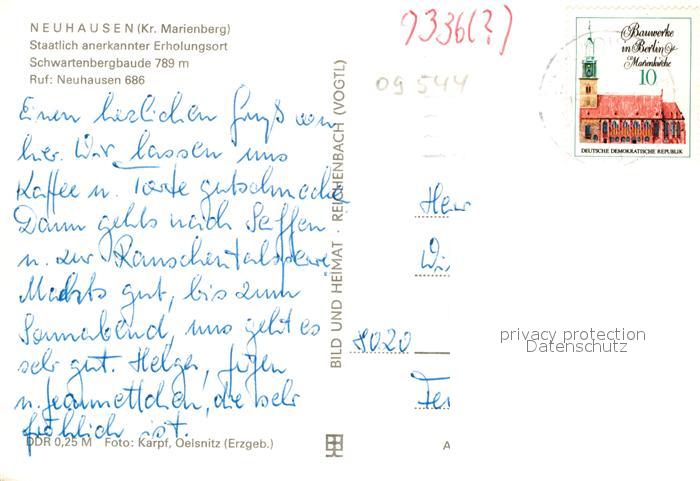 NEUHAUSEN (Kr. Marienberg)
Staatlich anerkannter Erholungsort
Schwartenbergbaude 789 m
Ruf: Neuhausen 686
9336(?)
09544
Bauwerke
in Berlin
Marienkirche
10
DEUTSCHE DEMOKRATISCHE REPUBLIK
Einen herzlichen Gruß von
hier. Wir lassen uns
Kaffee u. Torte gutschmecken
Dann gehts nach Seiffen
u. zur Rauschentalsperre
Machts gut, bis zum
Sonnabend, uns geht es
sehr gut. Helga, Jürgen
u. Jeannettchen, die sehr
fröhlich ist.
BILD UND HEIMAT · REICHENBACH (VOGTL)
8020
privacy protection
Datenschutz
DDR 0,25 M Foto: Karpf, Oelsnitz (Erzgeb.)
A